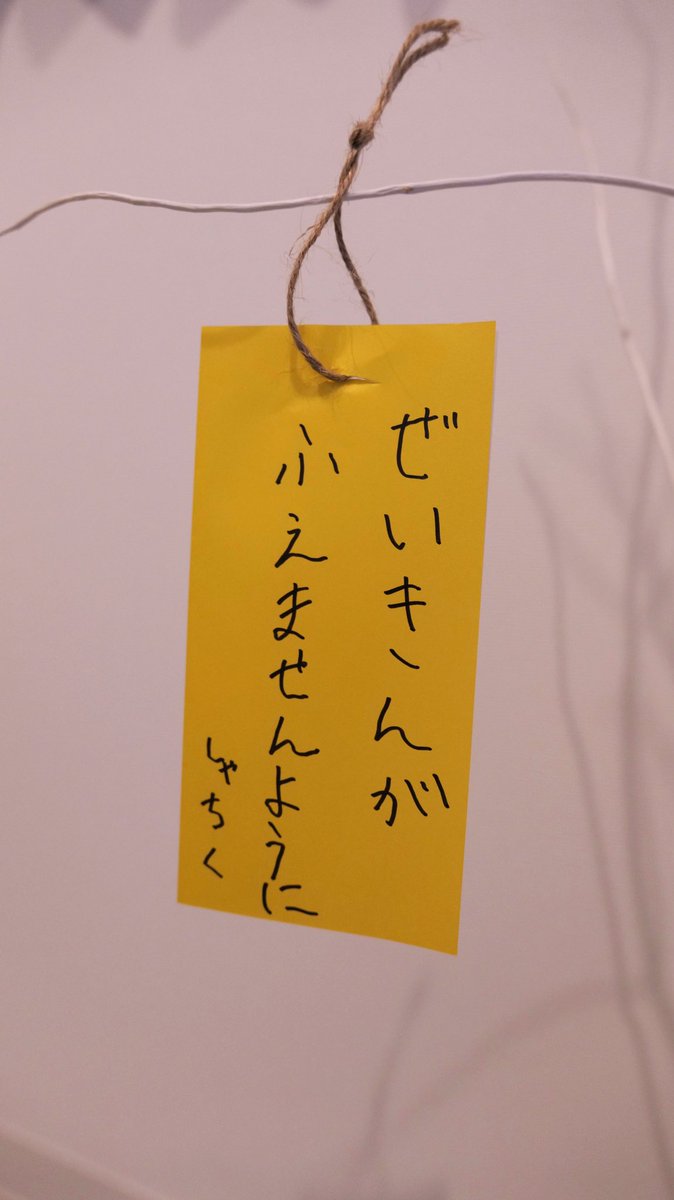 ぜいきんが
ふえませんように
しゃちく